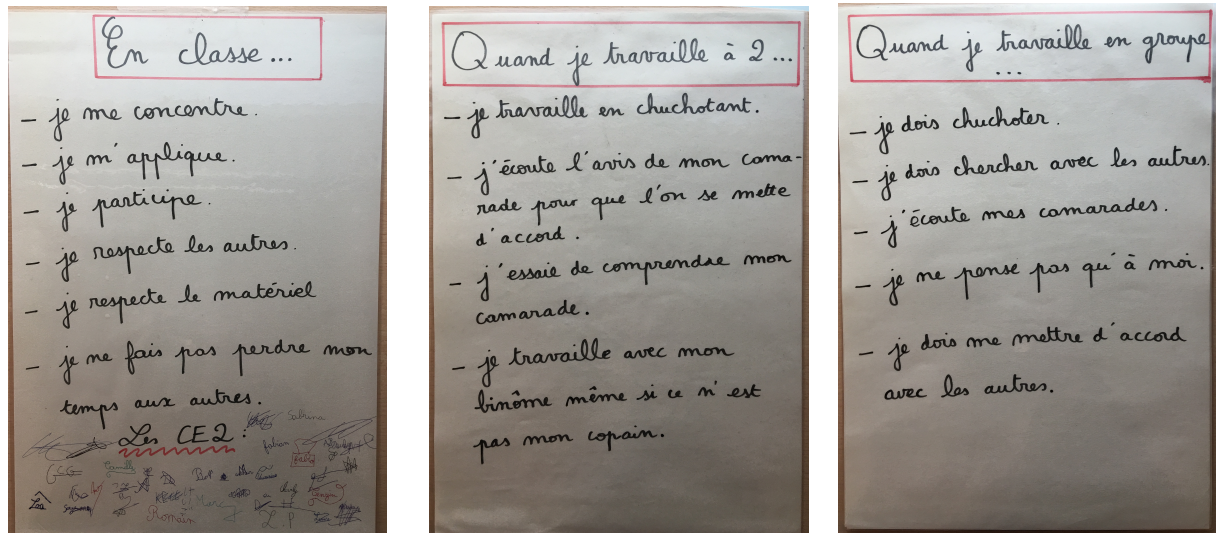 En classe...
- je me concentre.
- je m'applique.
- je participe.
- je respecte les autres.
- je respecte le matériel
- je ne fais pas perdre mon
temps aux autres.
Les CE2 :
Sabrina
fabian
Camille
Léa
Romain
L.P
Quand je travaille à 2...
- je travaille en chuchotant.
- j'écoute l'avis de mon cama-
rade pour que l'on se mette
d'accord.
- j'essaie de comprendre mon
camarade.
- je travaille avec mon
binôme même si ce n'est
pas mon copain.
Quand je travaille en groupe
...
- je dois chuchoter.
- je dois chercher avec les autres.
- j'écoute mes camarades.
- je ne pense pas qu'à moi.
- je dois me mettre d'accord
avec les autres.